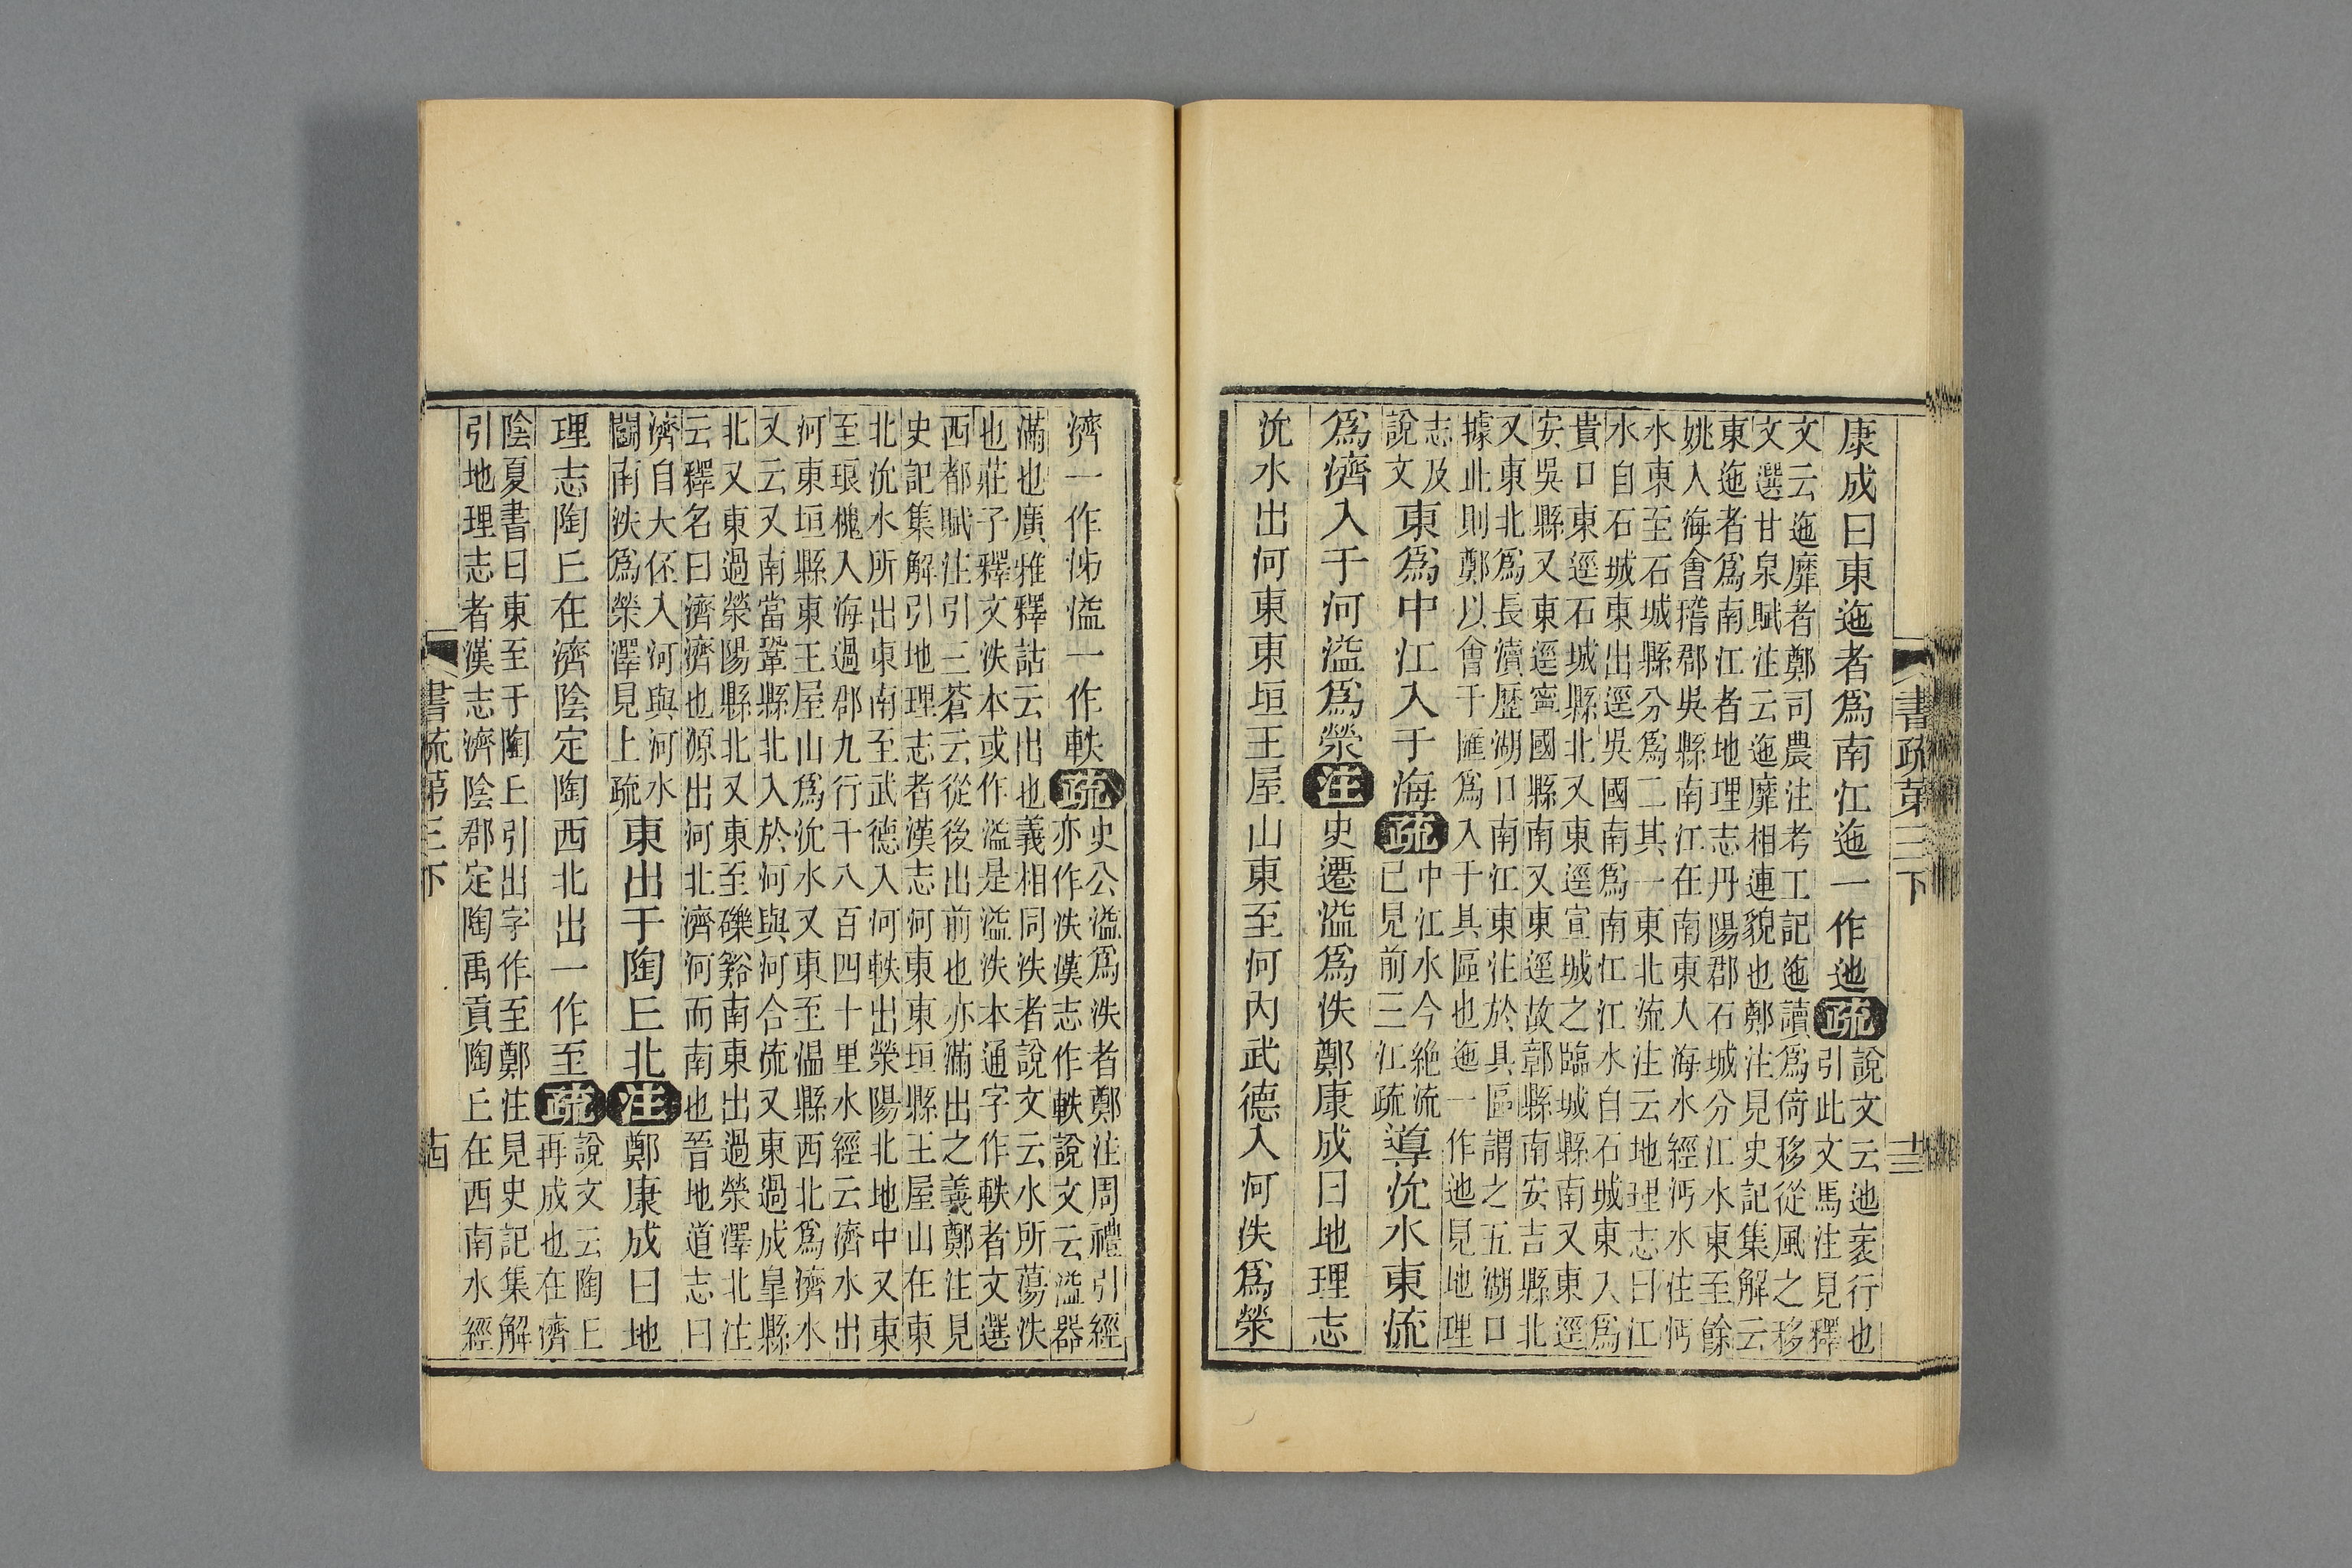 書疏第三下
十三
康成曰東迤者爲南江迤一作迆疏
說文云迆衺行也
引此文馬注見釋
文云迤靡者鄭司農注考工記迤讀爲倚移從風之移
文選甘泉賦注云迤靡相連貌也鄭注見史記集解云
東迤者爲南江者地理志丹陽郡石城分江水東至餘
姚入海會稽郡吳縣南江在南東入海水經沔水注沔
水東至石城縣分爲二其一東北流注云地理志曰江
水自石城東出逕吳國南爲南江江水自石城東入爲
貴口東逕石城縣北又東逕宣城之臨城縣南又東逕
安吳縣又東逕寧國縣南又東逕故鄣縣南安吉縣北
又東北爲長瀆歷湖口南江東注於具區謂之五湖口
據此則鄭以會于匯爲入于具區也迤一作迆見地理
志及
說文
東爲中江入于海疏
中江水今絶流
已見前三江疏
導沇水東流
爲濟入于河溢爲滎注史遷溢爲泆鄭康成曰地理志
沇水出河東東垣王屋山東至河內武德入河泆爲滎
濟一作泲溢一作軼疏
史公溢爲泆者鄭注周禮引經
亦作泆漢志作軼說文云溢器
滿也廣雅釋詁云出也義相同泆者說文云水所蕩泆
也莊子釋文泆本或作溢是溢泆本通字作軼者文選
西都賦注引三蒼云從後出前也亦滿出之義鄭注見
史記集解引地理志者漢志河東東垣縣王屋山在東
北沇水所出東南至武德入河軼出滎陽北地中又東
至琅槐入海過郡九行千八百四十里水經云濟水出
河東垣縣東王屋山爲沇水又東至温縣西北爲濟水
又云又南當鞏縣北入於河與河合流又東過成皐縣
北又東過滎陽縣北又東至礫谿南東出過滎澤北注
云釋名曰濟濟也源出河北濟河而南也晉地道志曰
濟自大伾入河與河水
鬭南泆爲滎澤見上疏
東出于陶𠀉北注鄭康成曰地
理志陶𠀉在濟陰定陶西北出一作至疏
說文云陶𠀉
再成也在濟
陰夏書曰東至于陶𠀉引出字作至鄭注見史記集解
引地理志者漢志濟陰郡定陶禹貢陶𠀉在西南水經
書疏第三下
十四